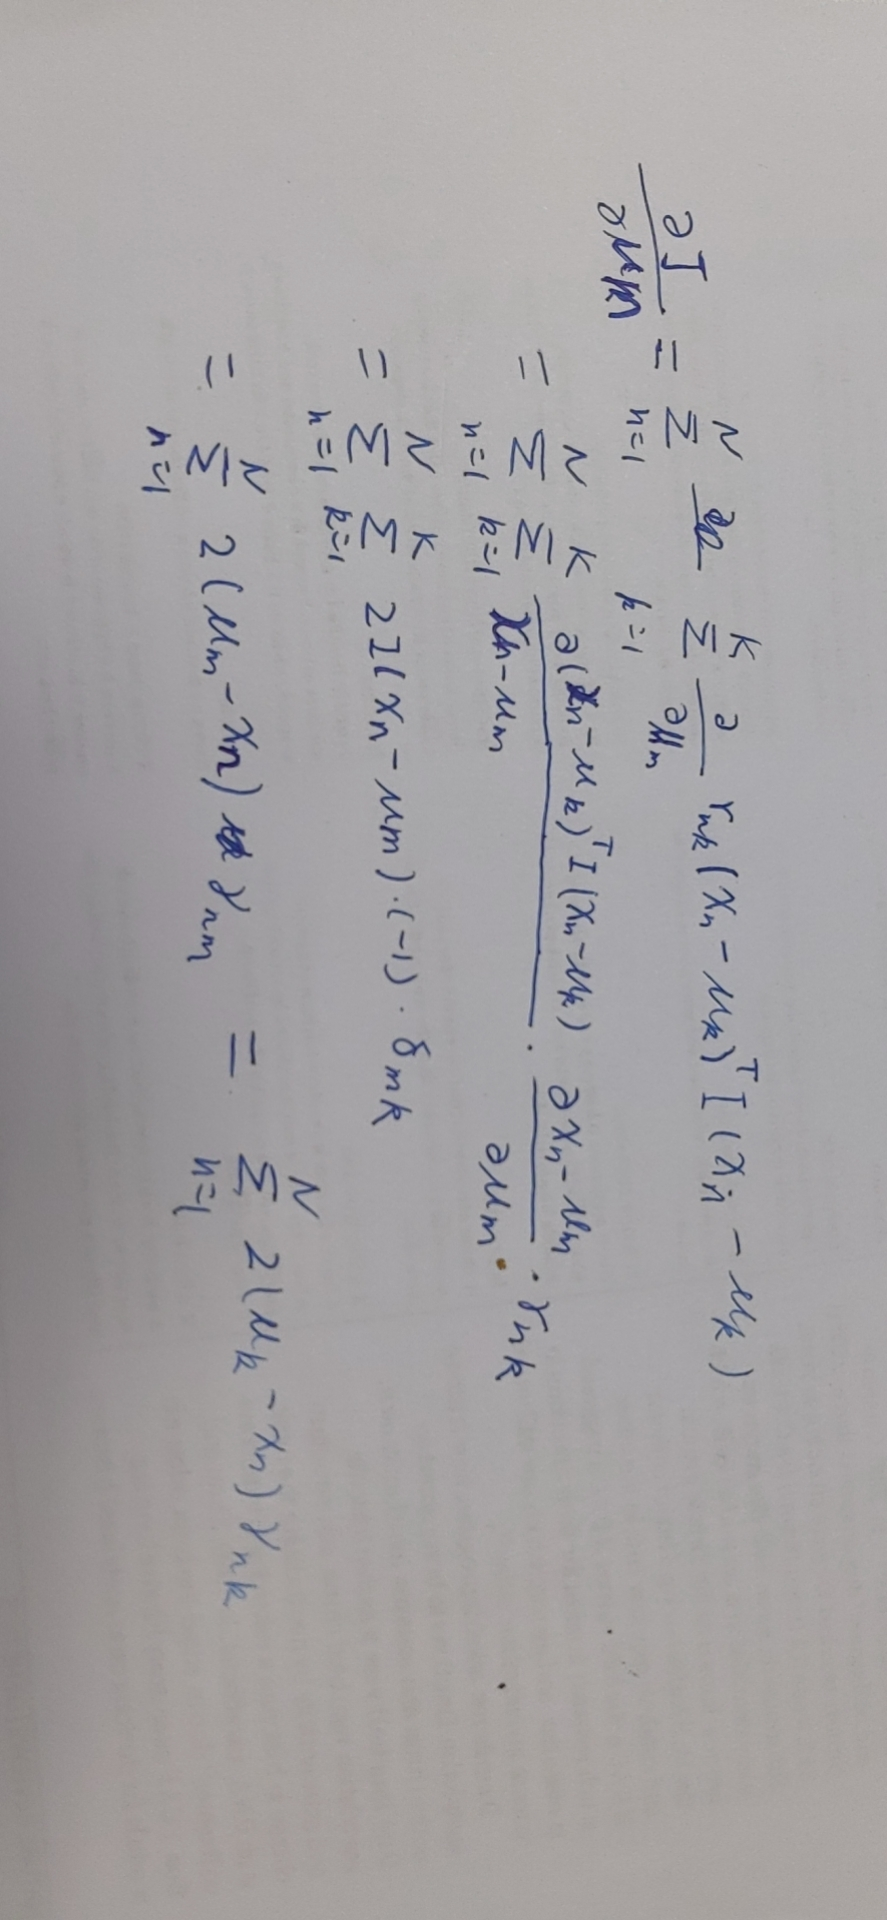 ∂J/∂μm = Σ_{n=1}^{N} Σ_{k=1}^{K} ∂/∂μm rnk (xn − μk)^T I (xn − μk)
= Σ_{n=1}^{N} Σ_{k=1}^{K} ∂(xn − μk)^T I (xn − μk)/xn − μm · ∂xn − μm/∂μm · γnk
= Σ_{n=1}^{N} Σ_{k=1}^{K} 2I(xn − μm) · (−1) · δmk
= Σ_{n=1}^{N} 2(μm − xn) γnm = Σ_{n=1}^{N} 2(μk − xn) γnk